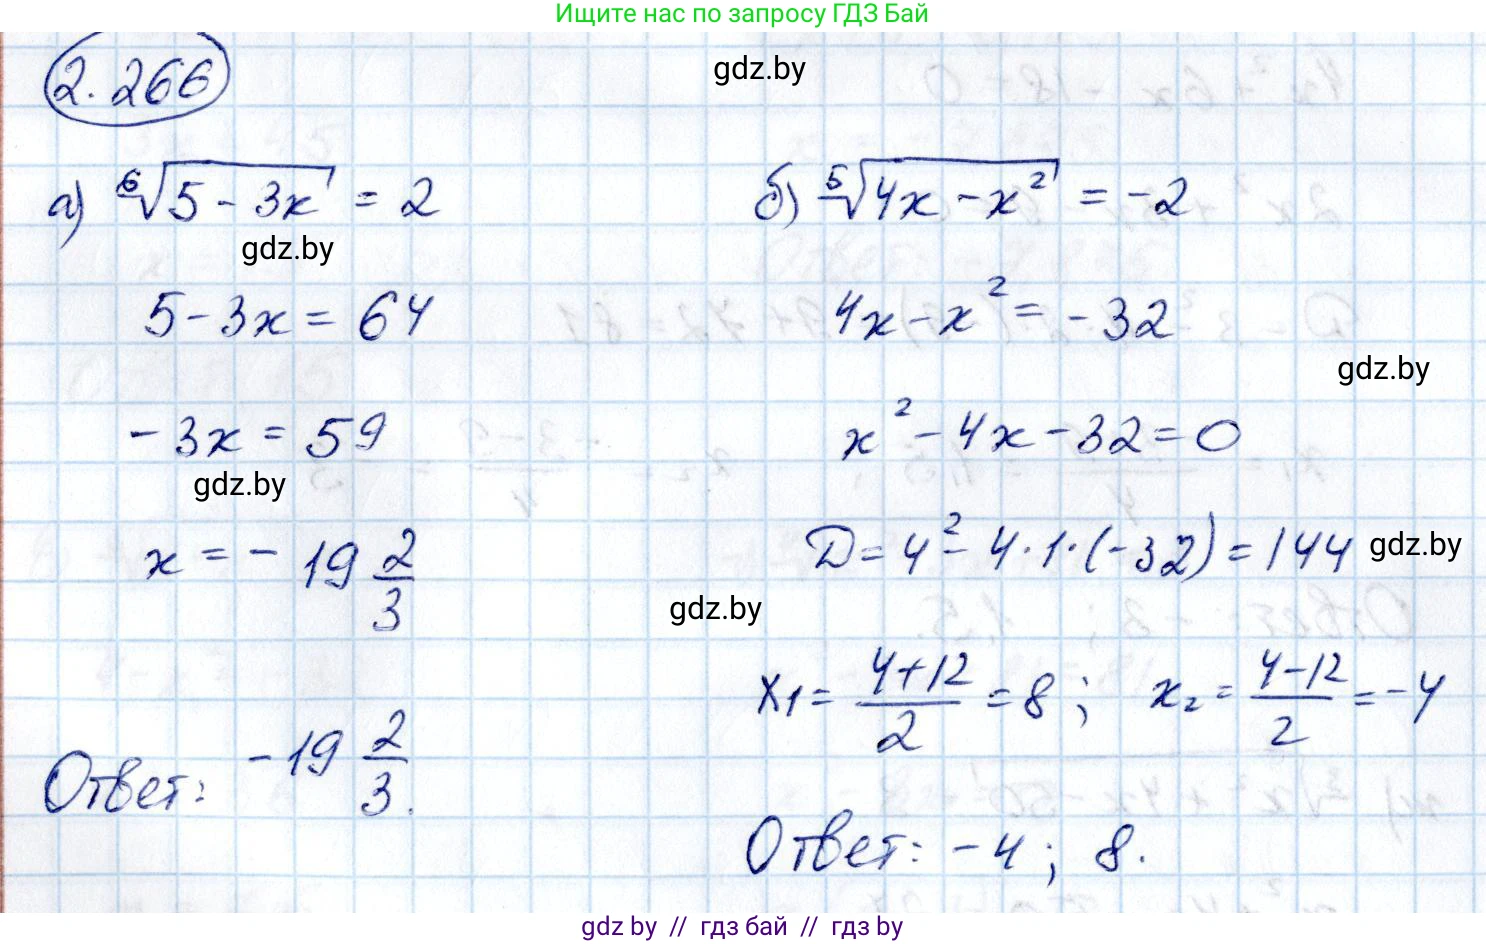 Ищите нас по запросу ГДЗ Бай
2.266
gdz.by
а) ⁶√(5 - 3x) = 2
gdz.by
5 - 3x = 64
- 3x = 59
gdz.by
x = - 19 2/3
Ответ: - 19 2/3.
б) ⁵√(4x - x²) = -2
4x - x² = - 32
gdz.by
x² - 4x - 32 = 0
D = 4² - 4·1·(-32) = 144
gdz.by
gdz.by
x₁ = (4+12)/2 = 8 ; x₂ = (4-12)/2 = -4
Ответ: -4 ; 8.
gdz.by // гдз бай // гдз.by